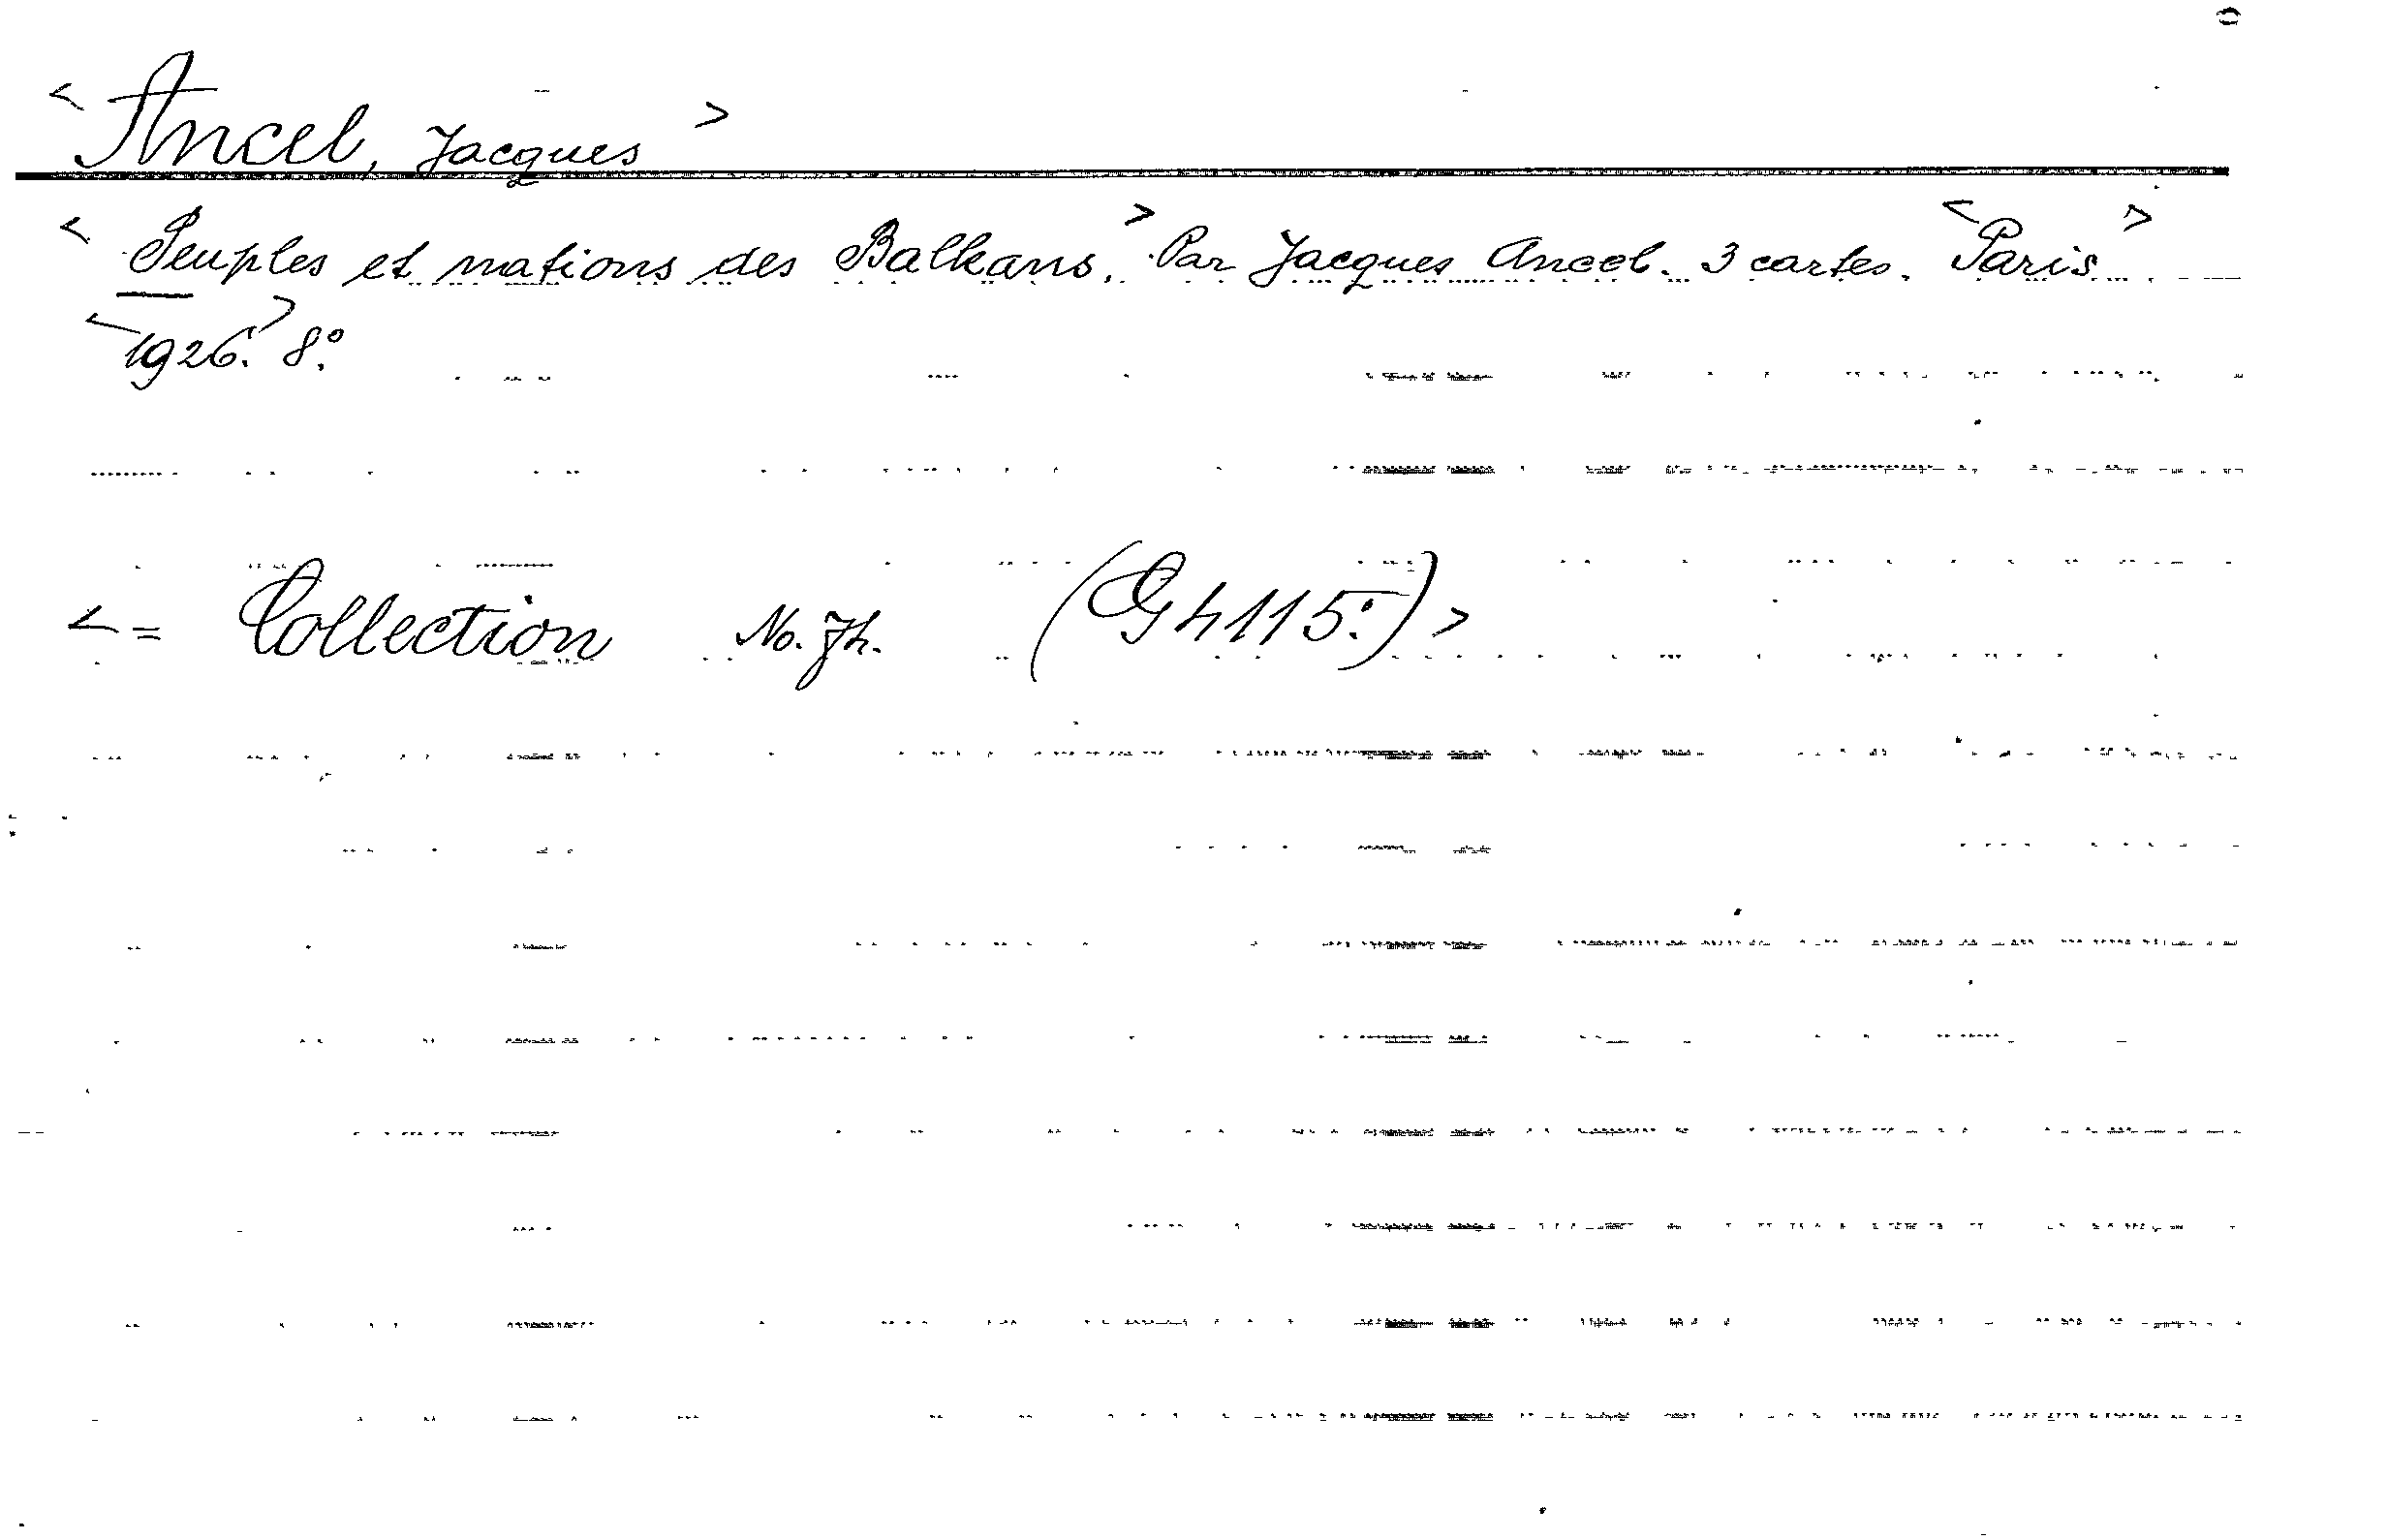 < Ancel, Jacques >
< Peuples et nations des Balkans. > Par Jacques Ancel. 3 cartes. < Paris >
< 1926. > 8°.
< = Collection No. 7h. (Gh 115.) >